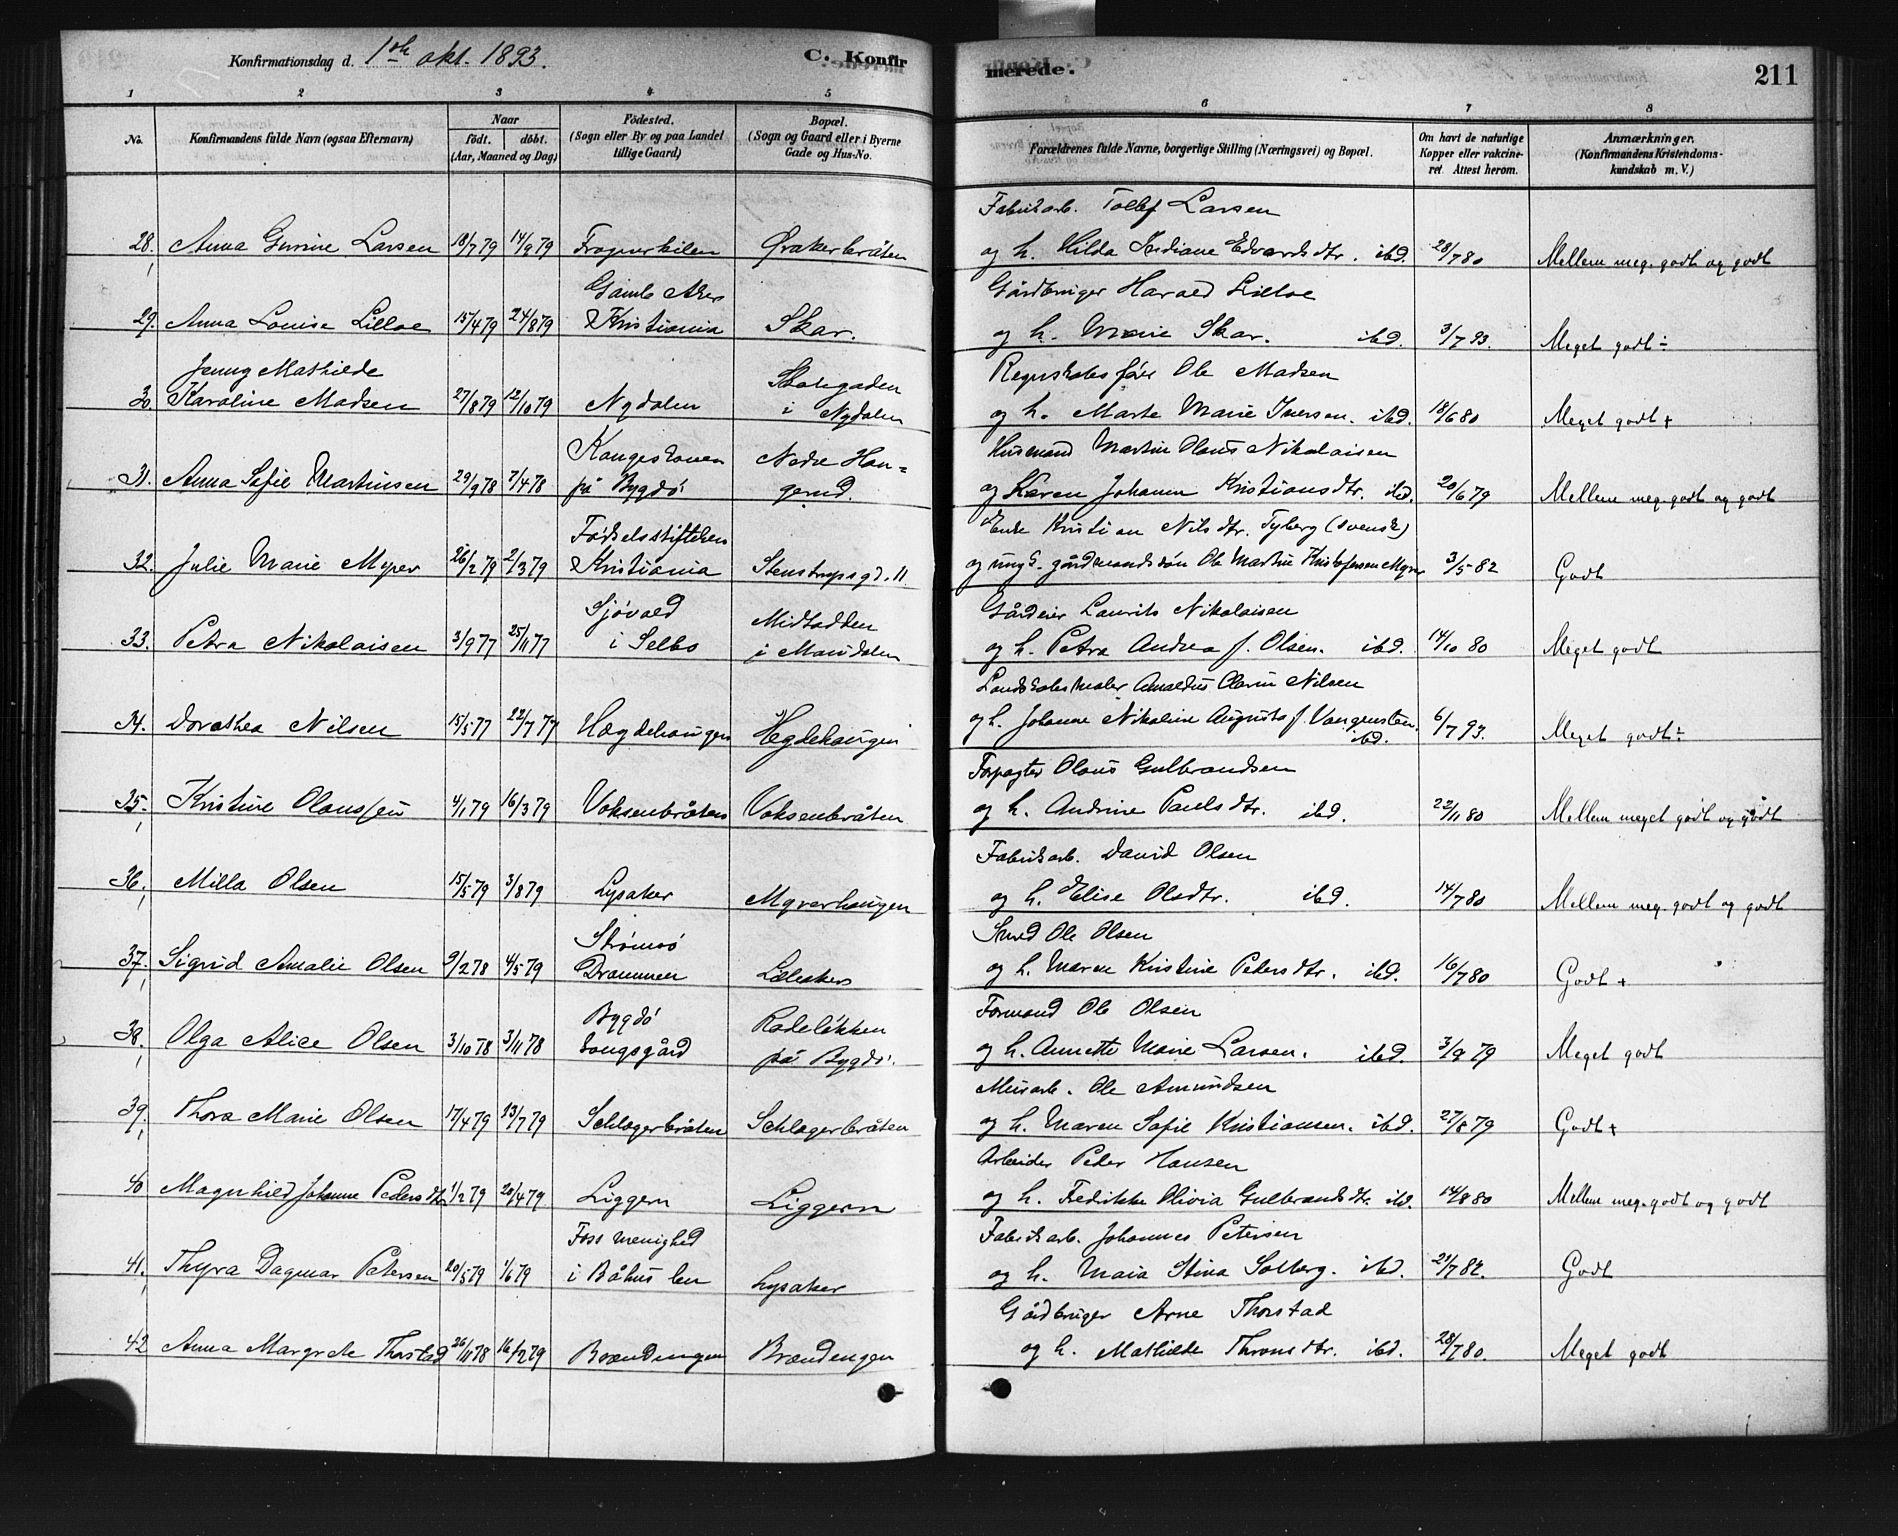 Konfirmationsdag d. 1ste okt. 1893.
C. Konfirmerede.
211
1 2 3 4 5 6 7 8
No.
Konfirmandens fulde Navn (ogsaa Efternavn)
Naar
födt. döbt.
(Aar, Maaned og Dag)
Födested.
(Sogn eller By og paa Landet
tillige Gaard)
Bopæl.
(Sogn og Gaard eller i Byerne
Gade og Hus-No.
Forældrenes fulde Navne, borgerlige Stilling (Næringsvei) og Bopæl.
Om havt de naturlige
Kopper eller vakcine-
ret. Attest herom.
Anmærkninger.
(Konfirmandens Kristendoms-
kundskab m. V.)
Fabrikarb. Tollef Larsen
28. Anna Gurine Larsen 18/7 79 14/9 79 Frognerkilen Øraker bråten og h. Hilda Indiane Edvardsdtr. ibd. 28/7 80 Mellem meg. godt og godt
Gamle Aker Gårdbruger Harald Lilloe
29. Anna Louise Lilloe 15/4 79 24/8 79 Kristiania Skar. og h. Marie Skar. ibd. 3/7 93. Meget godt ÷
Jenny Mathilde Skolegaden Regnskabsfører Ole Madsen
30. Karoline Madsen 27/8 79 12/10 79 Nydalen i Nydalen og h. Marte Marie Iversen. ibd. 18/6 80 Meget godt +
Kongeskoven Nedre Hau= Husmand Martin Olaus Nikolaisen
31. Anna Sofie Martinsen 29/9 78 7/4 78 på Bygdö gerud. og Karen Johanne Kristiansdtr. ibd. 20/6 79 Mellem meg. godt og godt
Fødselsstiftelsen Enke Kristian Nilsdtr. Tyberg (svensk)
32. Julie Marie Myrer 26/2 79 2/3 79 Kristiania Stenstrupsgd. 11. og ungk. gårdmandssøn Ole Martin Kristofersen Myrer 3/5 82 Godt
Sjøvold Midtodden Gårdeier Laurits Nikolaisen
33. Petra Nikolaisen 3/9 77 25/11 77 i Selbo i Maridalen og h. Petra Andrea f. Olsen. ibd. 14/10 80 Meget godt
Landskabsmaler Amaldus Clarin Nilsen
34. Dorothea Nilsen 15/5 77 22/7 77 Hægdehaugen Hegdehaugen og h. Johanne Nikoline Augusta f. Vangensten. ibd. 6/7 93. Meget godt ÷
Forpagter Olaus Gulbrandsen
35. Kristine Olaussen 4/1 79 16/3 79 Voksenbråten Voksenbråten. og h. Andrine Paulsdtr. ibd. 22/11 80 Mellem meget godt og godt
Fabrikarb. David Olsen
36. Milla Olsen 15/5 79 3/8 79 Lysaker Myrerhaugen og h. Elise Olsdtr. ibd. 14/7 80 Mellem meg. godt og godt
Strømsö Smed Ole Olsen
37. Sigrid Amalie Olsen 9/2 78 4/5 79 Drammen Lilleaker og h. Maren Kristine Pedersdtr. ibd. 16/7 80 Godt +
Bygdö Rodeløkken Formand Ole Olsen
38. Olga Alice Olsen 3/10 78 3/11 78 kongsgård på Bygdö. og h. Annette Marie Larsen. ibd. 3/9 79 Meget godt
Murarb. Ole Amundsen
39. Thora Marie Olsen 17/4 79 13/7 79 Schlagerbråten Schlagerbråten og h. Maren Sofie Kristiansen. ibd. 27/8 79 Godt +
Arbeider Peder Hansen
40 Magnhild Johanne Pedersdtr 1/2 79 20/4 79 Liggern Liggern og h. Fredrikke Olivia Gulbrandsdtr. ibd. 14/8 80 Mellem meg. godt og godt
Foss menighed Fabrikarb. Johannes Petersen
41. Thyra Dagmar Petersen 20/5 79 1/6 79 i Båhus len Lysaker og h. Maia Stina Solberg. ibd. 21/7 82. Godt
Gårdbruger Arne Thorstad
42 Anna Margrete Thorstad 26/11 78 16/2 79 Brændingen Brændengen og h. Mathilde Thronsdtr. ibd. 28/7 80. Meget godt